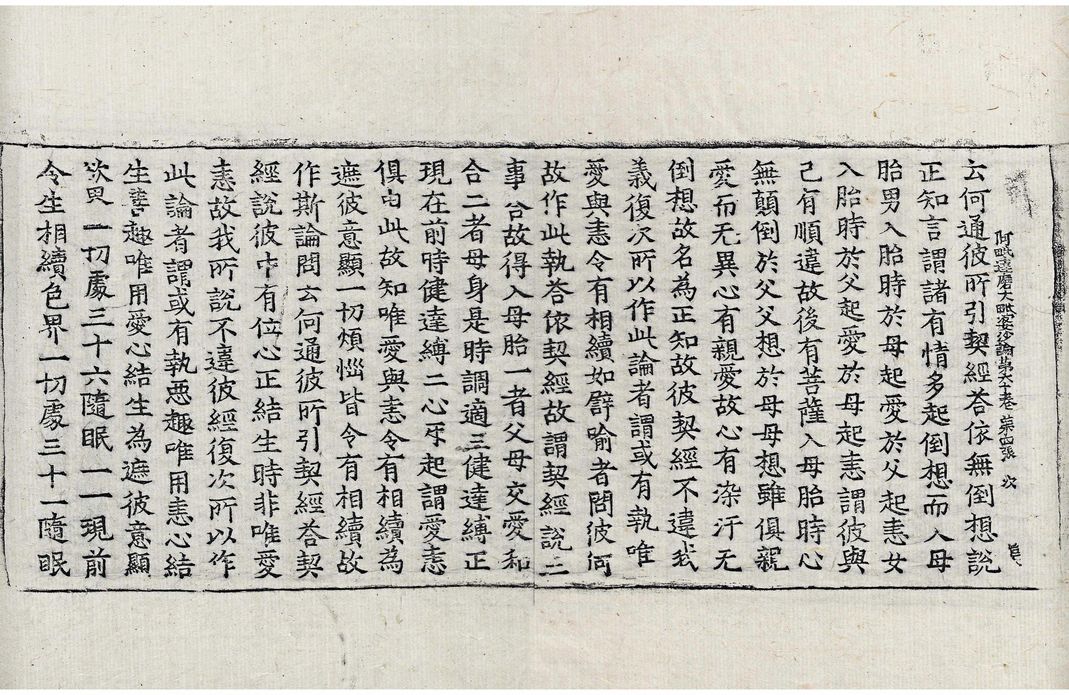 阿毗達磨大毗婆沙論第六十卷 第四張 次
云何通彼所引契經荅依無倒想說
正知言謂諸有情多起倒想而入母
胎男入胎時於母起愛於父起恚女
入胎時於父起愛於母起恚謂彼與
己有順違故後有菩薩入母胎時心
無顛倒於父父想於母母想雖俱親
愛而无異心有親愛故心有染汙无
倒想故名為正知故彼契經不違我
義復次所以作此論者謂或有執唯
愛與恚令有相續如譬喻者問彼何
故作此執荅依契經故謂契經說二
事合故得入母胎一者父母交愛和
合二者母身是時調適三健達縛正
現在前時健達縛二心互起謂愛恚
俱由此故知唯愛與恚令有相續為
遮彼意顯一切煩惱皆令有相續故
作斯論問云何通彼所引契經荅契
經說彼中有位心正結生時非唯愛
恚故我所說不違彼經復次所以作
此論者謂或有執惡趣唯用恚心結
生善趣唯用愛心結生為遮彼意顯
欲界一切處三十六隨眠一一現前
令生相續色界一切處三十一隨眠